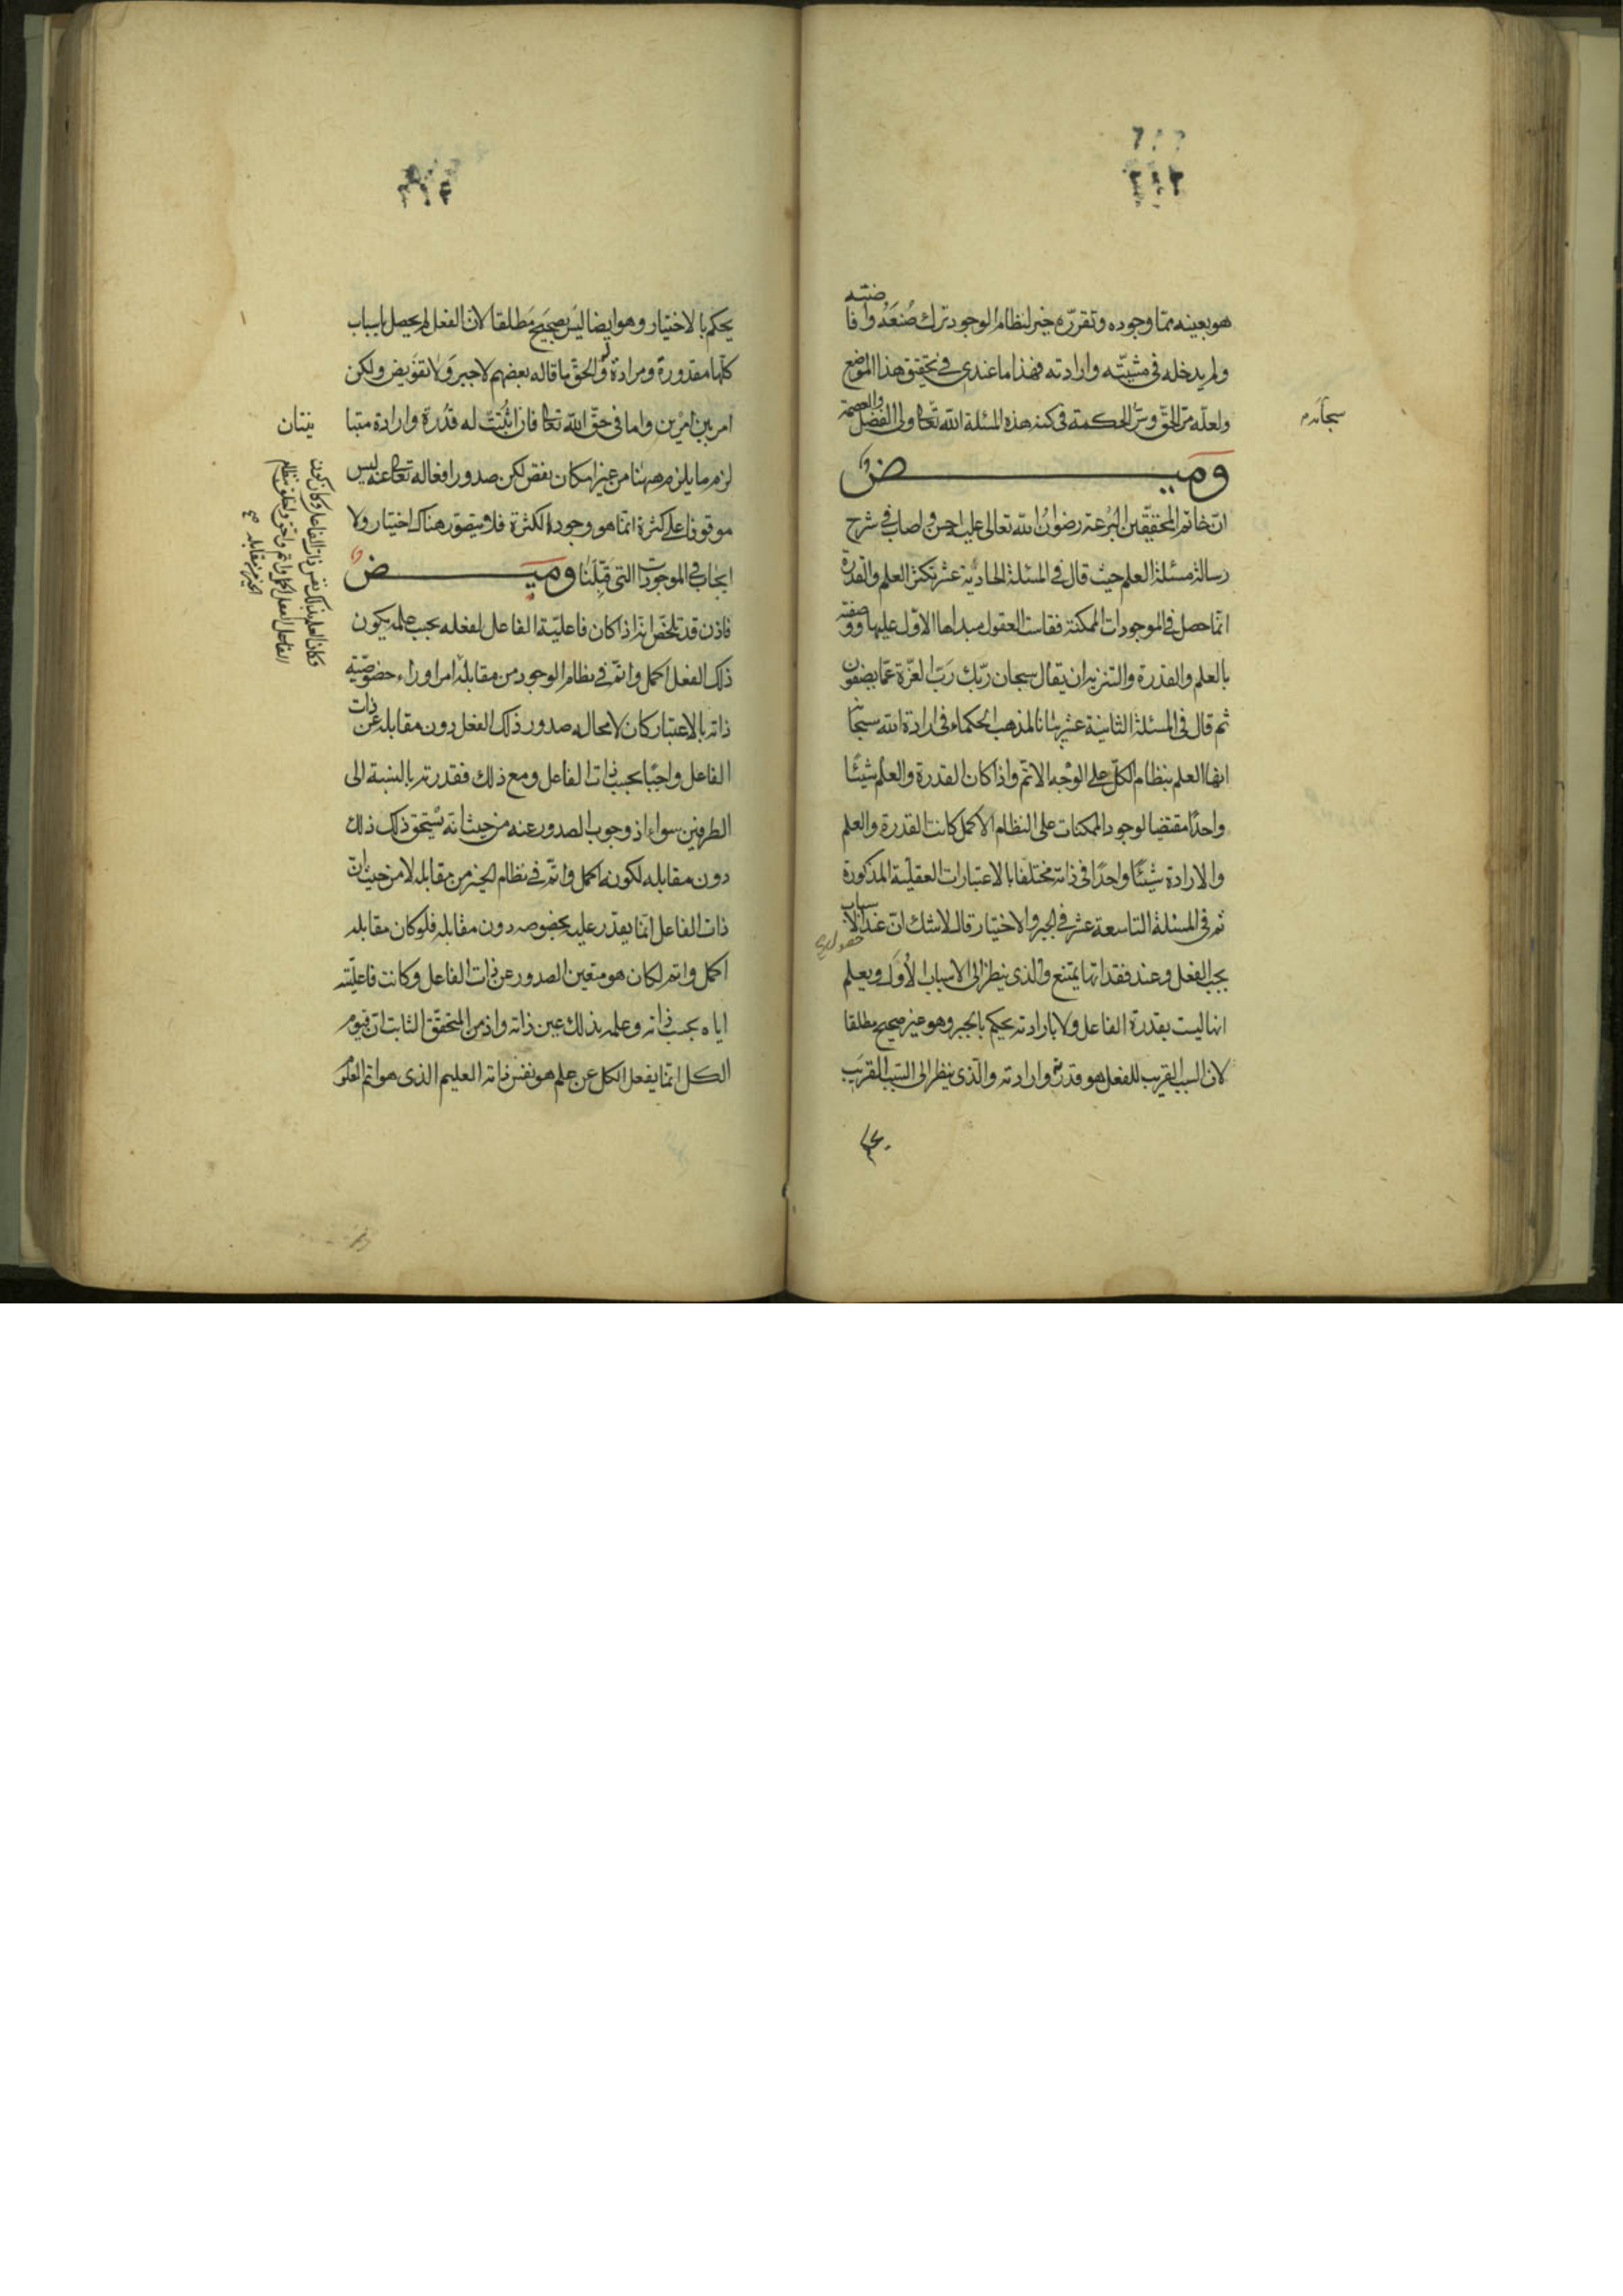 هو بعينه مما وجوده وتقرره خير لنظام الوجود ترك صنعه وافاضته
ولم يدخله فى مشيته وارادته فهذا ما عندى فى تحقيق هذا الموضع
ولعله مرّ الحقّ وسرّ الحكمة فى كنه هذه المسئلة الله تعالى ولى الفضل والعصمة
وميض
ان خاتم المحققين البرعة رضوان الله تعالى عليه احسن واصاب فى شرح
رسالة مسئلة العلم حيث قال فى المسئلة الحادية عشر تكثر العلم والقدرة
انما حصل فى الموجودات الممكنة فقاست العقول مبداها الاول عليها ووصفته
بالعلم والقدرة والتنزيه ان يقال سبحان ربك رب العزة عما يصفون
ثم قال فى المسئلة الثانية عشر بيانا لمذهب الحكماء فى ارادة الله سبحانه
انها العلم بنظام الكل على الوجه الاتم واذا كان القدرة والعلم شيئا
واحدا مقتضيا لوجود الممكنات على النظام الاكمل كانت القدرة والعلم
والارادة شيئا واحدا فى ذاته مختلفا بالاعتبارات العقلية المذكورة
ثم فى المسئلة التاسعة عشر فى الجبر والاختيار قال لا شك ان عند الاسباب
يجب الفعل وعند فقدانها يمتنع والذى ينظر الى الاسباب الأُوَل ويعلم
انها ليست بقدرة الفاعل ولا بارادته يحكم بالجبر وهو غير صحيح مطلقا
لان السبب القريب للفعل هو قدرته وارادته والذى ينظر الى السبب القريب
يحكم بالاختيار وهو ايضا ليس بصحيح مطلقا لان الفعل لم يحصل باسباب
كلها مقدورة ومرادة والحق ما قاله بعضهم لا جبر ولا تفويض ولكن
امر بين امرين واما فى حق الله تعالى فان اثبتت له قدرة وارادة متبا
ينتان
لزم ما يلزم ههنا من غير امكان تفص لكن صدور افعاله تعالى عنه ليس
موقوفا على كثرة انما هو وجود الكثرة فلا يتصور هناك اختيار ولا
ايجاب فى الموجودات التى قبلنا وميض
فاذن قد تلخص انه اذا كان فاعلية الفاعل لفعله بحسب علمه بكون
ذلك الفعل اكمل واتم فى نظام الوجود من مقابله امرا وراء خصوصية
ذاته بالاعتبار كان لا محاله صدور ذلك الفعل دون مقابله عن ذات
الفاعل واجبا بحسب ذات الفاعل ومع ذلك فقدرته بالنسبة الى
الطرفين سواء اذ وجوب الصدور عنه من حيث انه يستحق ذلك ذلك
دون مقابله لكونه اكمل واتم فى نظام الخير من مقابله لا من حيث ان
ذات الفاعل انما يقدر عليه بخصوصه دون مقابله فلو كان مقابله
اكمل واتم لكان هو متعين الصدور عن ذات الفاعل وكانت فاعليته
اياه بحسب ذاته وعلمه بذلك عين ذاته واذ من المتحقق الثابت ان قيوم
الكل انما يفعل الكل عن علم هو نفس ذاته العليم الذى هو اتم العلوم